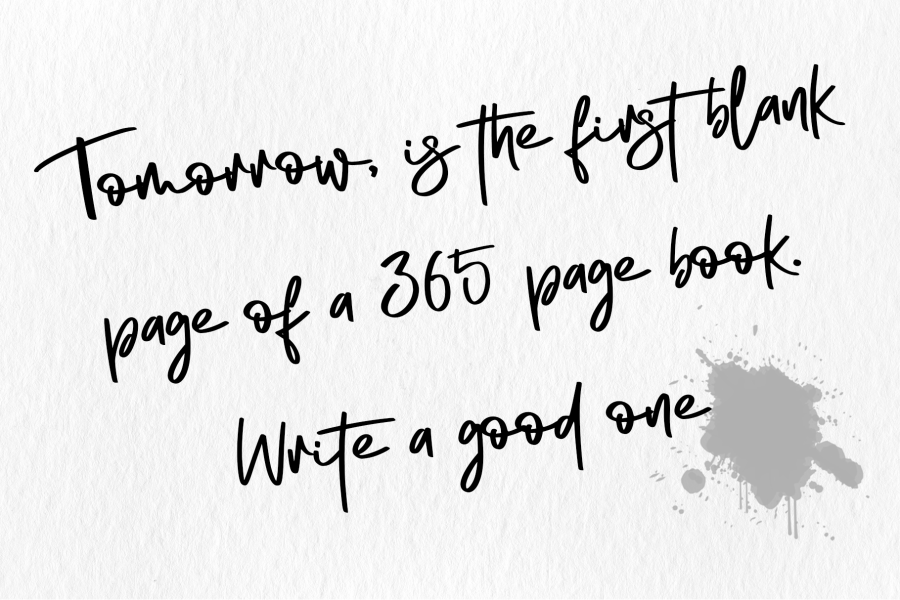 Tomorrow, is the first blank
page of a 365 page book.
Write a good one